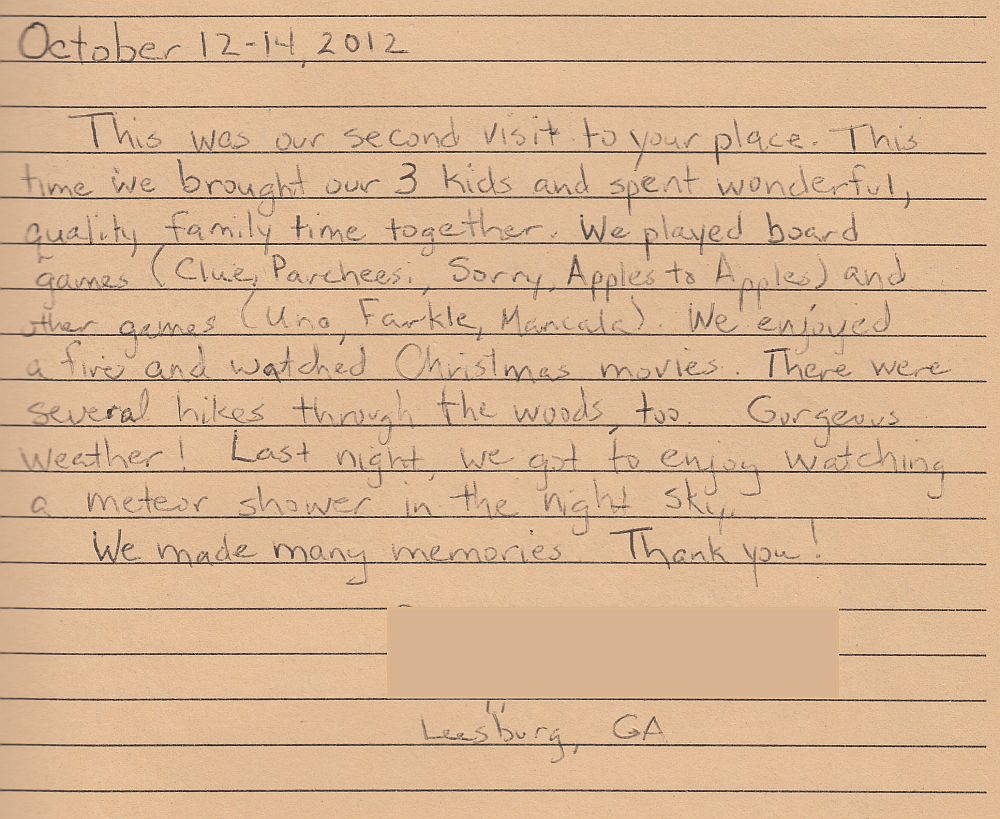 October 12-14, 2012
This was our second visit to your place. This
time we brought our 3 kids and spent wonderful,
quality family time together. We played board
games (Clue, Parcheesi, Sorry, Apples to Apples) and
other games (Uno, Farkle, Mancala). We enjoyed
a fire and watched Christmas movies. There were
several hikes through the woods, too. Gorgeous
weather! Last night, we got to enjoy watching
a meteor shower in the night sky.
We made many memories. Thank you!
Leesburg, GA